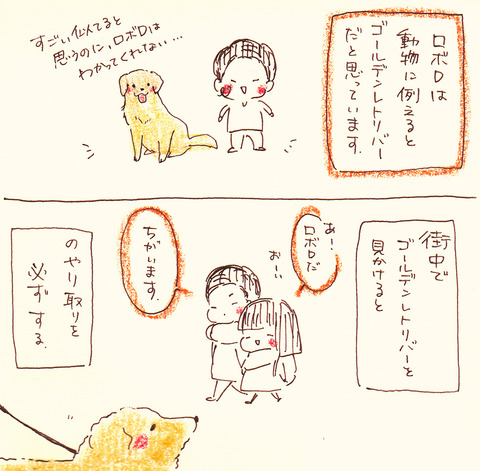 ロボロは
動物に例えると
ゴールデンレトリバー
だと思っています。
すごい似てると
思うのに、ロボロは
わかってくれない…
街中で
ゴールデンレトリバーを
見かけると
あー、
ロボロだ
おーい
ちがいます。
のやり取りを
必ずする。